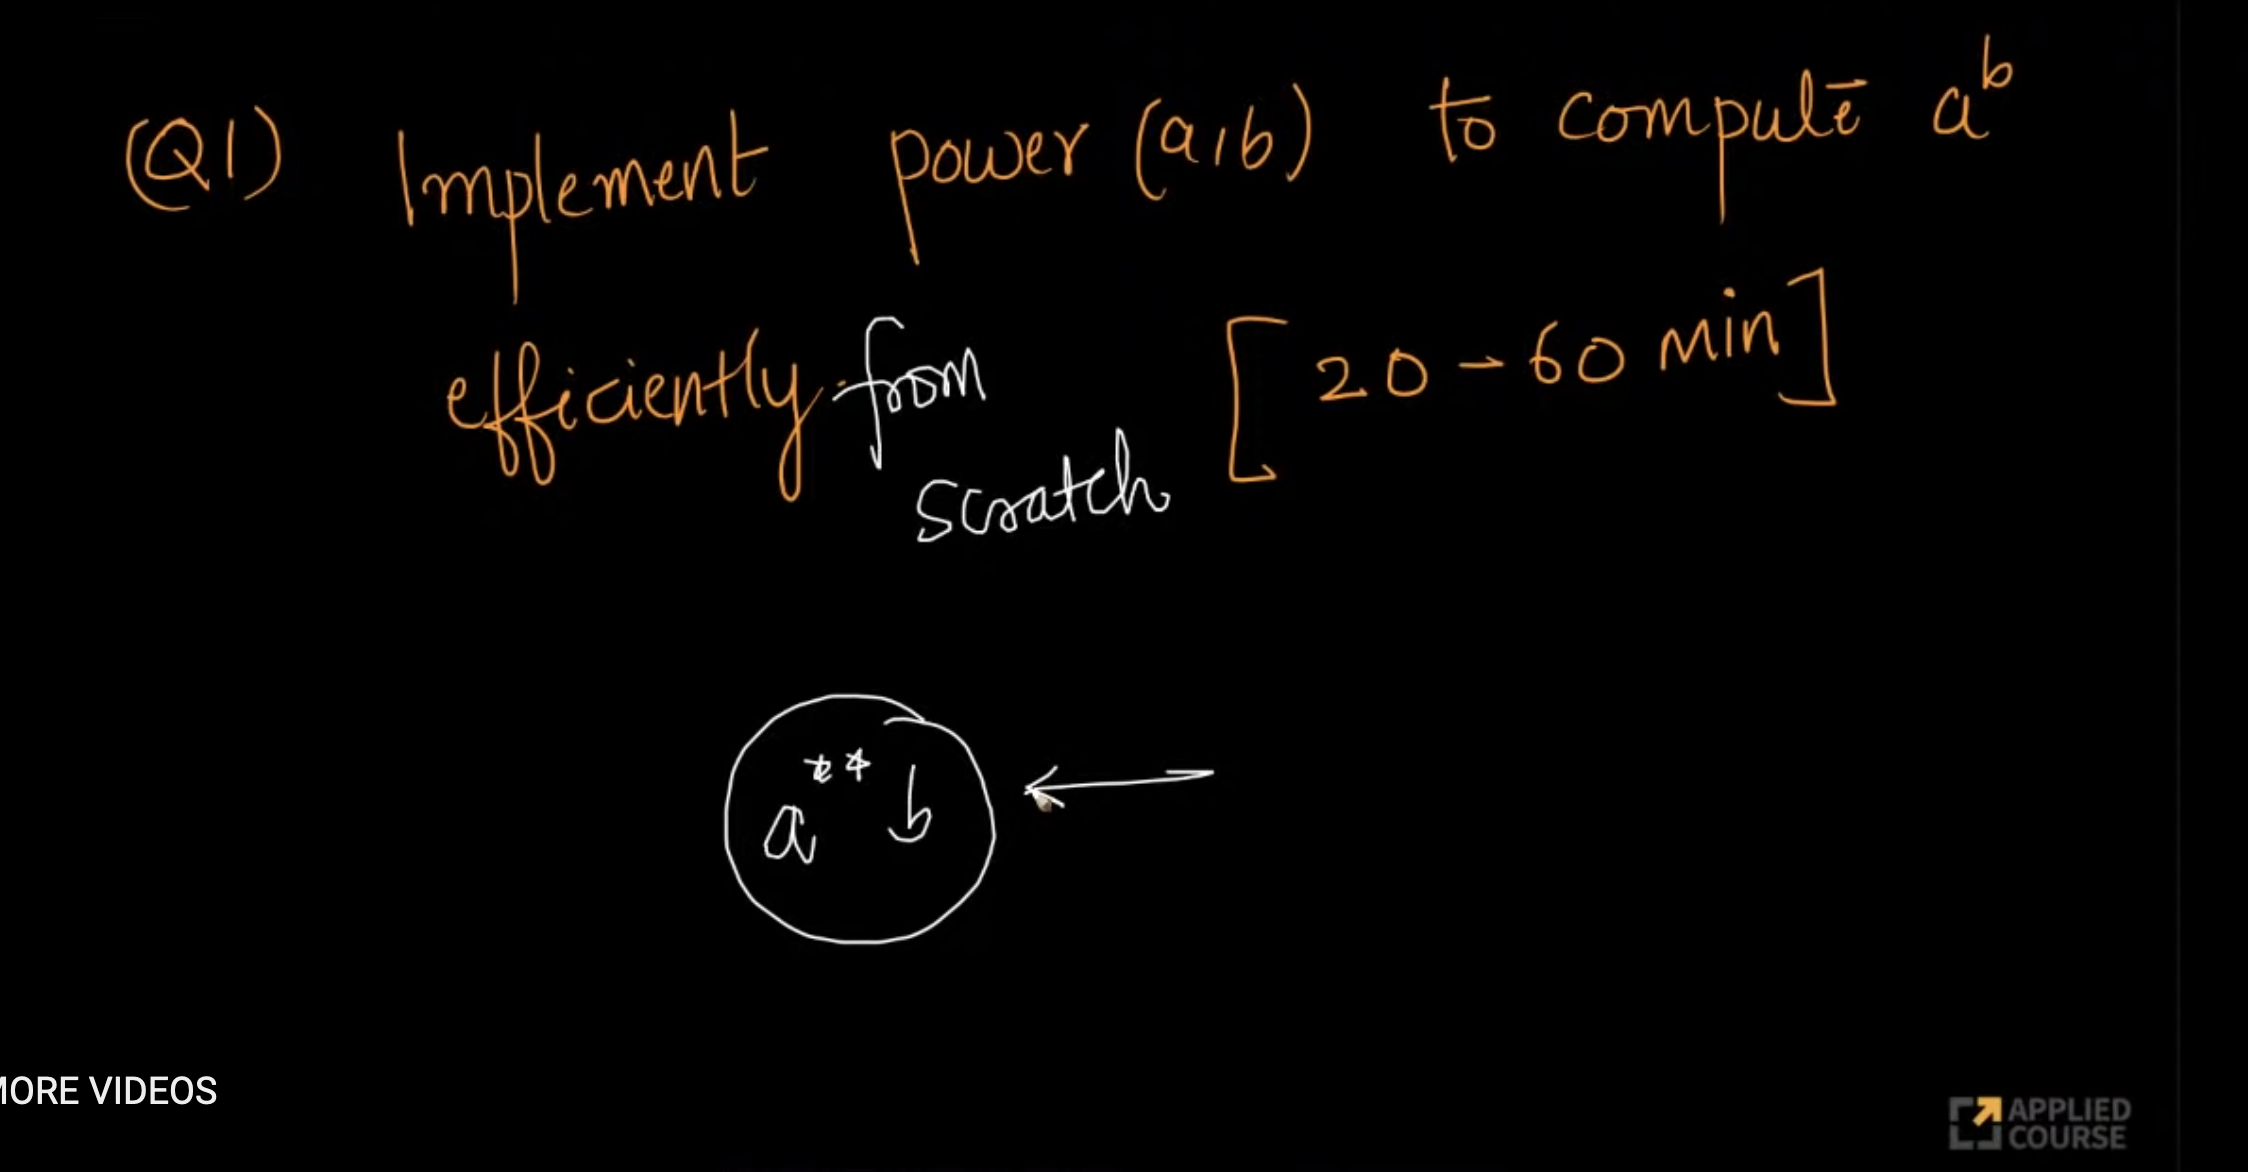 (Q1) Implement power (a,b) to compute a^b
efficiently from [20-60 min]
scratch
a ** b
MORE VIDEOS
APPLIED
COURSE